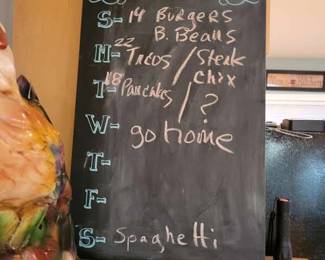 S- 14 Burgers
B. Beans
M- 22 Tacos / Steak
chix
T- 18 Pancakes / ?
W- go home
T-
F-
S- Spaghetti